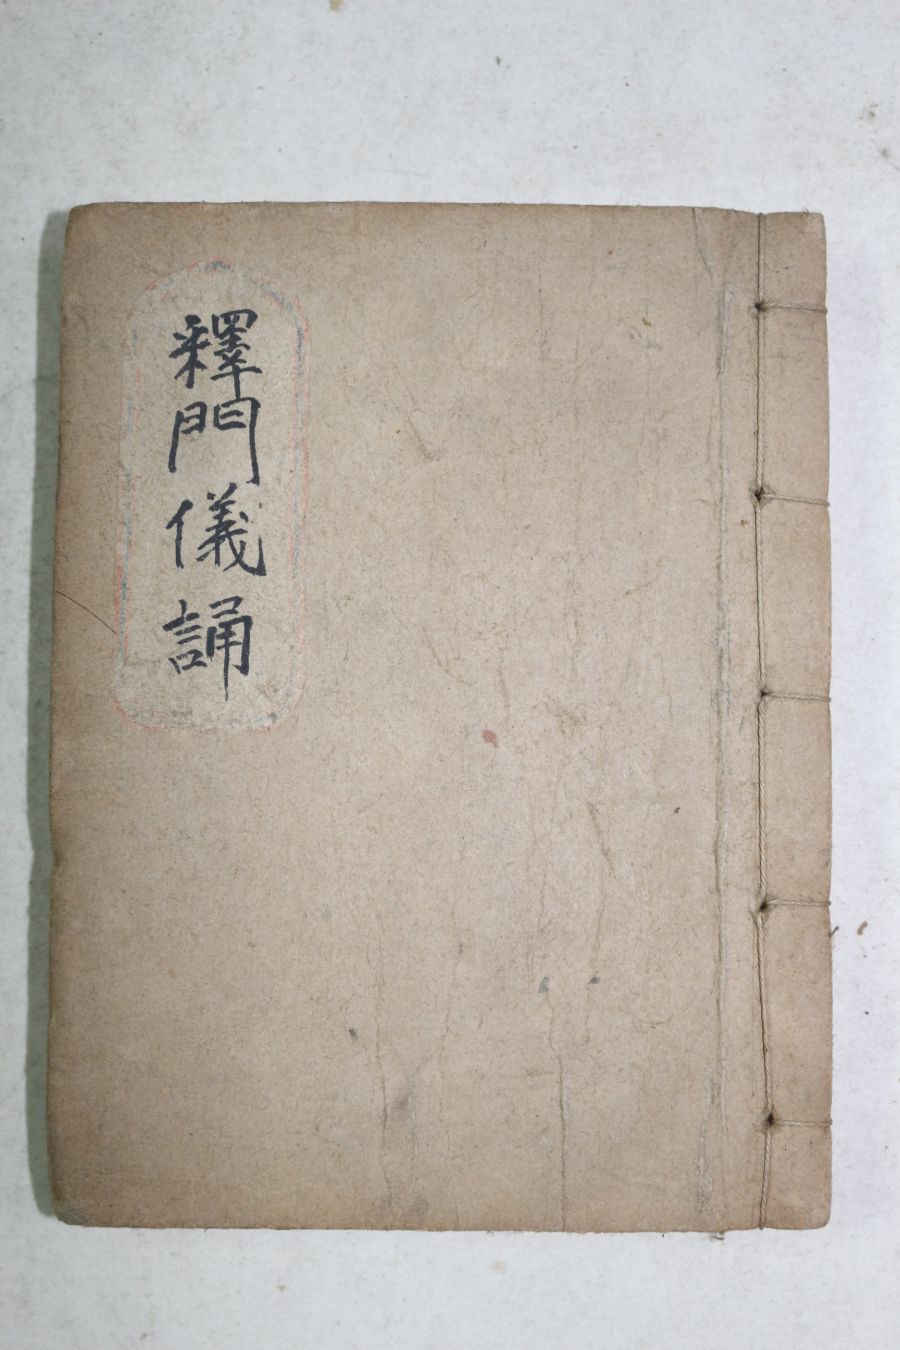 釋門儀誦